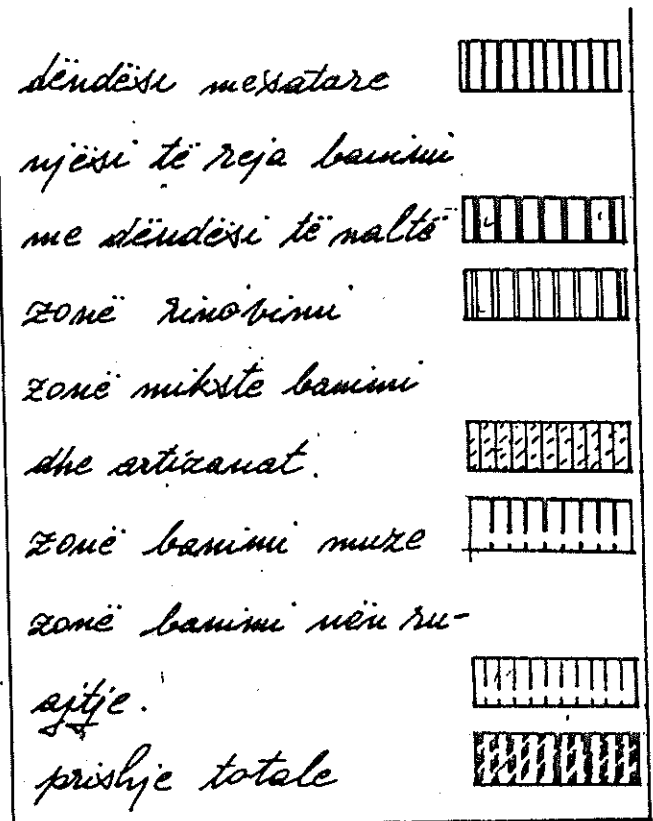 dëndësi mesatare
njësi të reja banimi
me dëndësi të naltë
zonë rinovimi
zonë mikste banimi
dhe artizanat.
zonë banimi muze
zonë banimi nën ru-
ajtje.
prishje totale